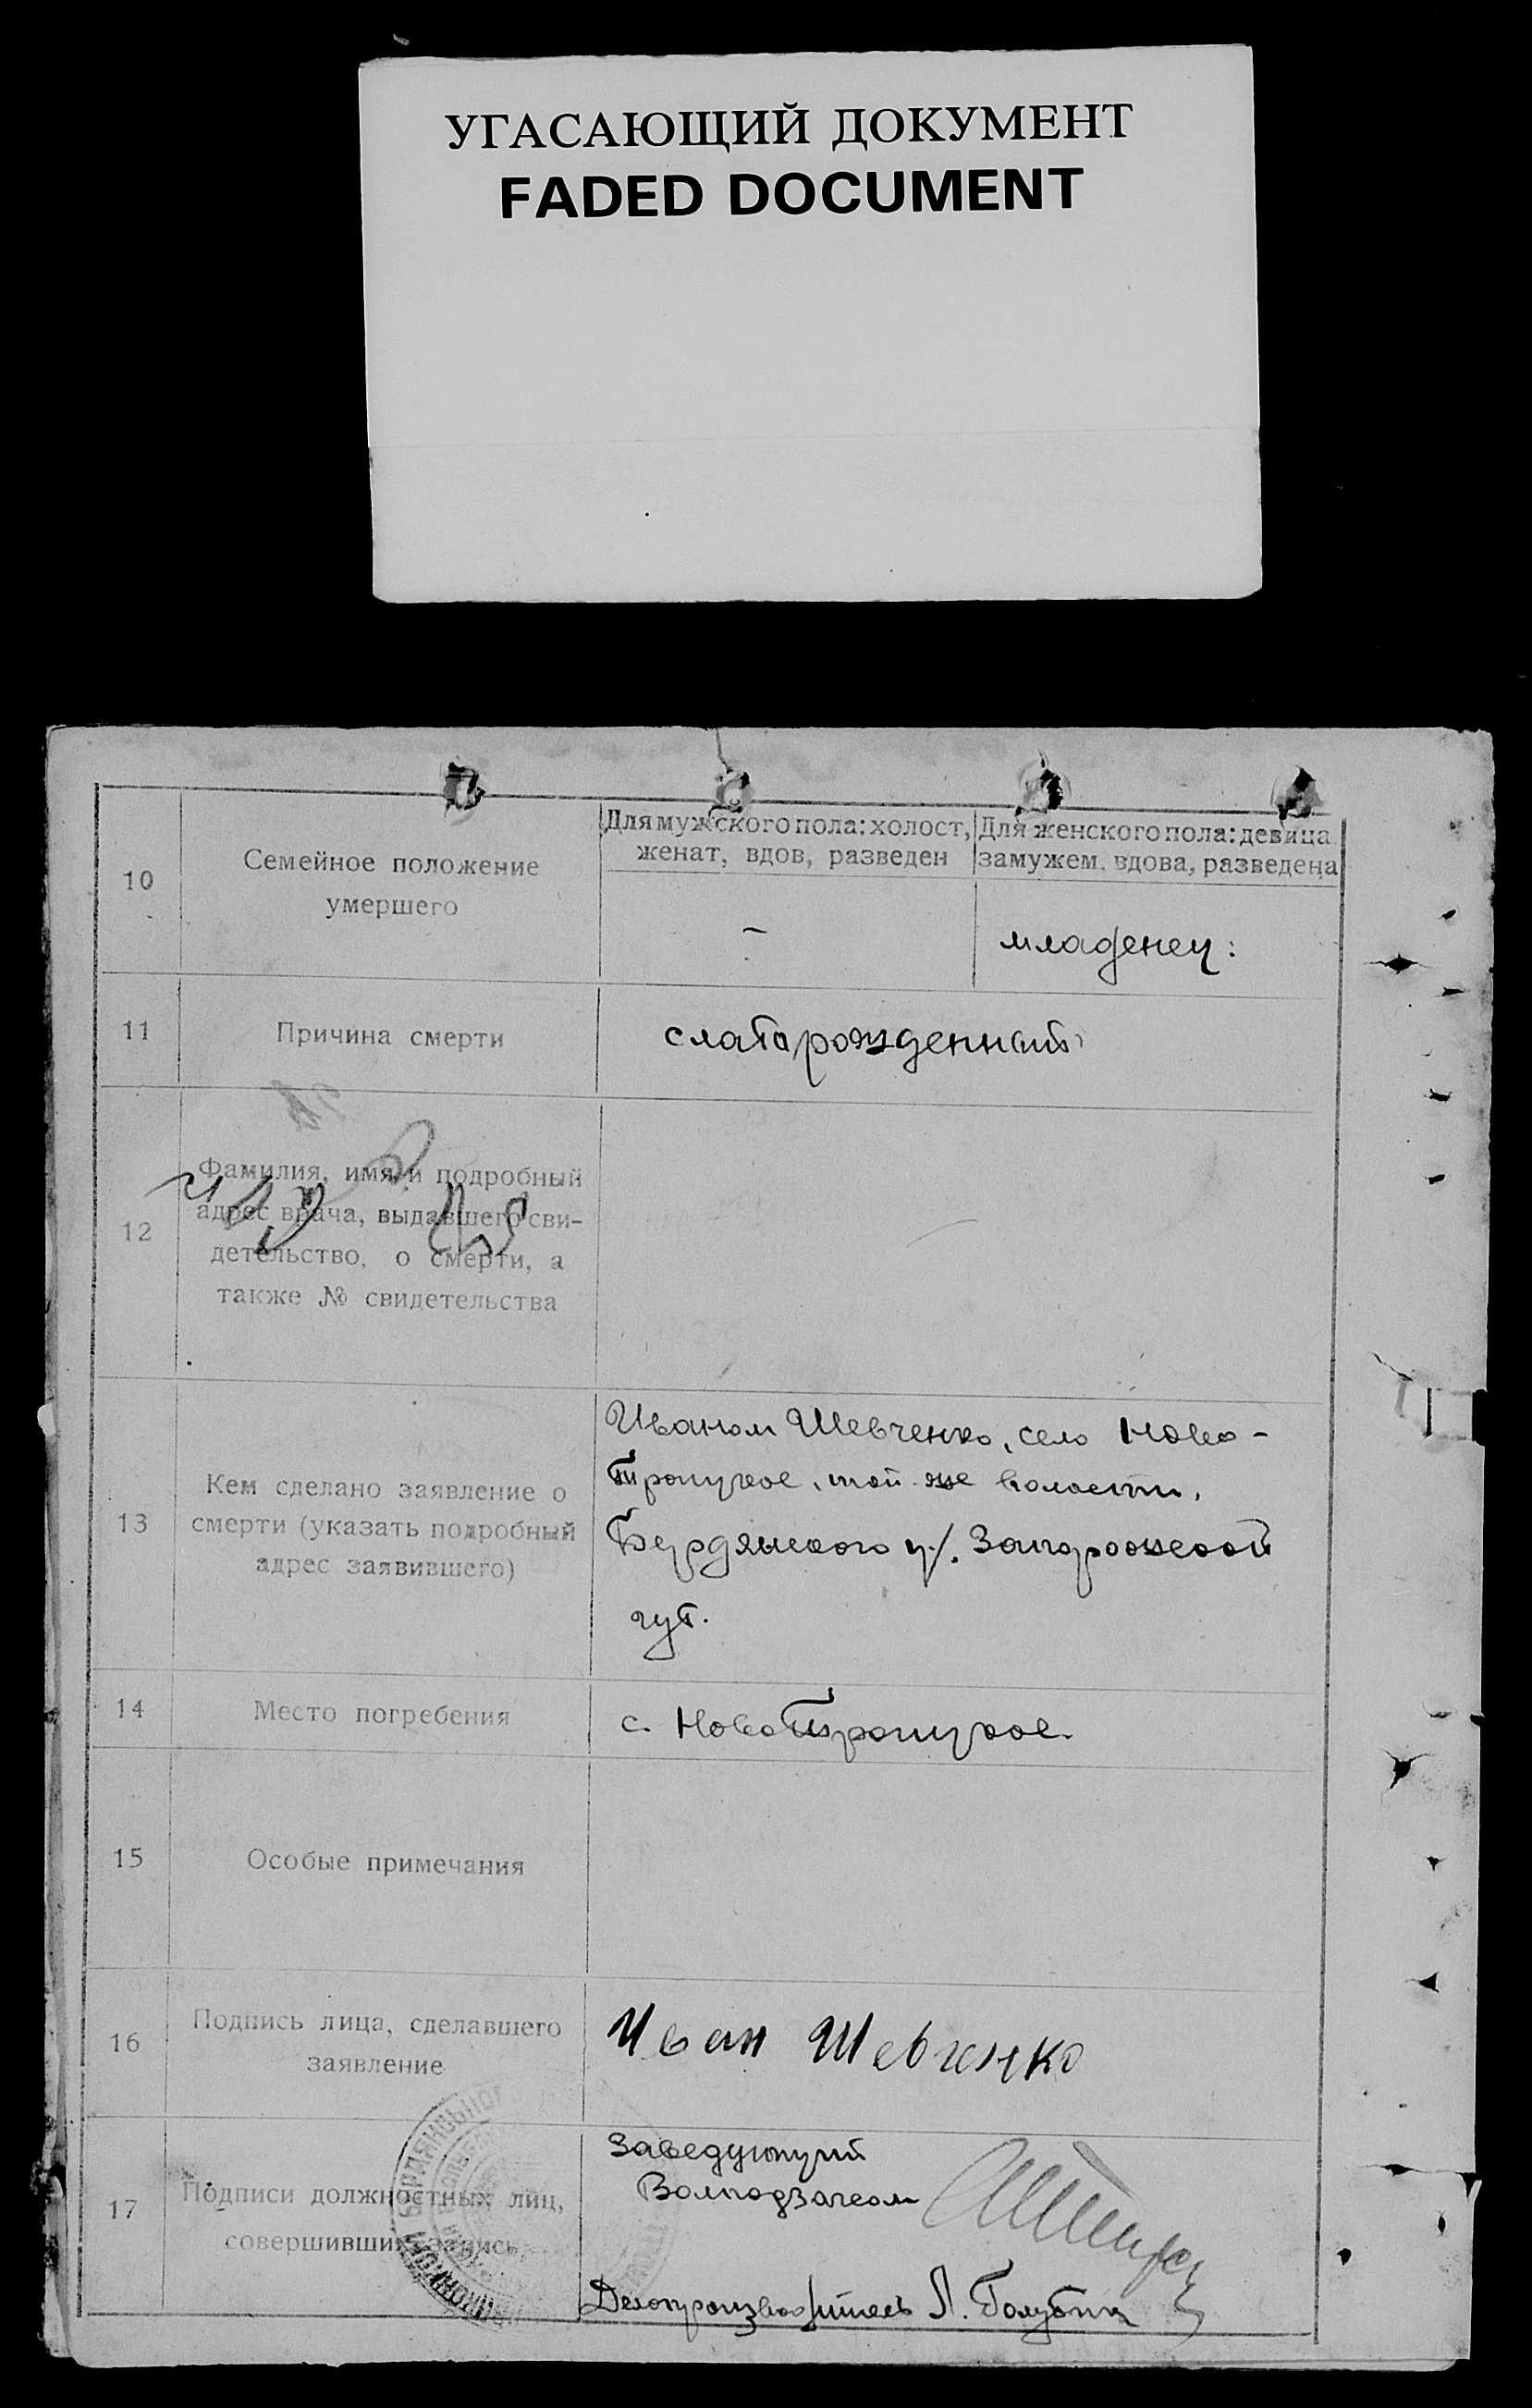 УГАСАЮЩИЙ ДОКУМЕНТ
FADED DOCUMENT
10
Семейное положение
умершего
Для мужского пола: холост,
женат, вдов, разведен
Для женского пола: девица
замужем, вдова, разведена
–
младенец:
11
Причина смерти
слаборожденный
12
Фамилия, имя и подробный
адрес врача, выдавшего сви-
детельство, о смерти, а
также № свидетельства
13
Кем сделано заявление о
смерти (указать подробный
адрес заявившего)
Иваном Шевченко, село Ново-
Троицкое, той-же волости,
Бердянского у/. Запорожской
губ.
14
Место погребения
с. НовоТроицкое
15
Особые примечания
16
Подпись лица, сделавшего
заявление
Иван Шевченко
17
Подписи должностных лиц,
совершивших запись
Заведующий
Волподзагсом
Делопроизводитель Л.